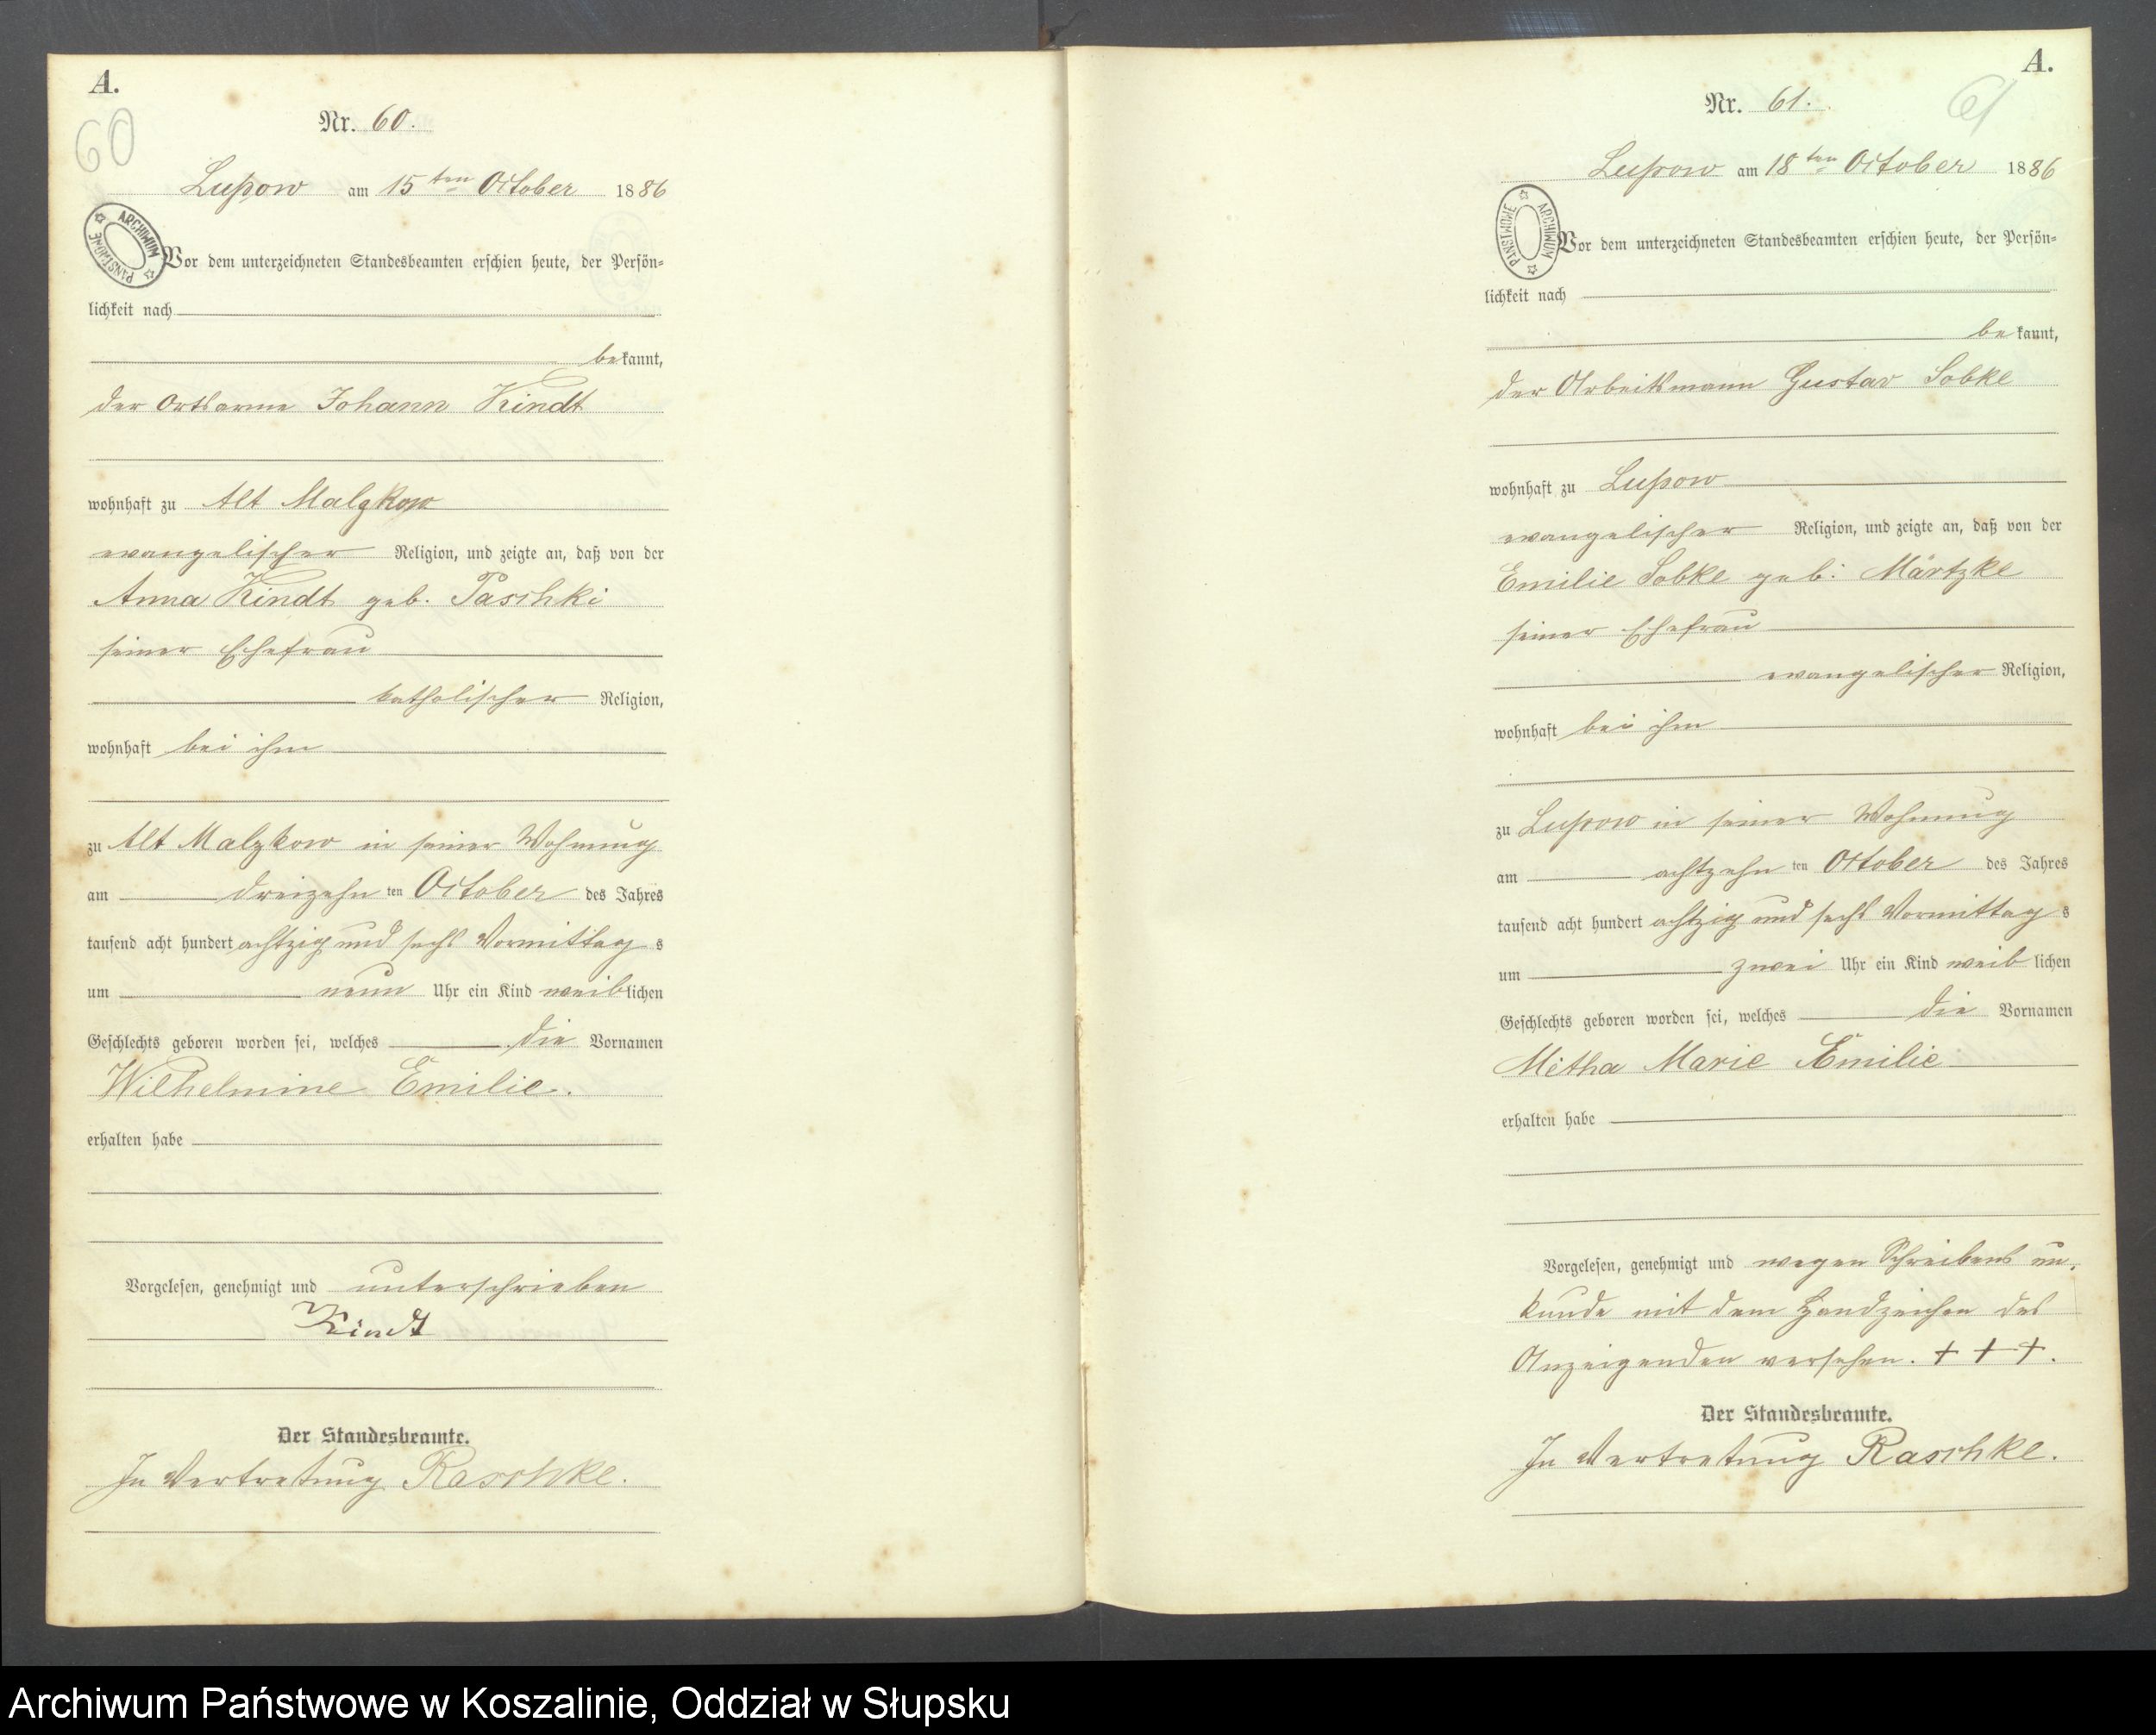 A.
60
Nr. 60.
Lupow am 15ten October 1886
ARCHIWUM PAŃSTWOWE
Vor dem unterzeichneten Standesbeamten erschien heute, der Persön=
lichkeit nach
bekannt,
der Ortsarme Johann Kindt
wohnhaft zu Alt Malzkow
evangelischer Religion, und zeigte an, daß von der
Anna Kindt geb. Paschki
seiner Ehefrau
katholischer Religion,
wohnhaft bei ihm
zu Alt Malzkow in seiner Wohnung
am dreizehn ten October des Jahres
tausend acht hundert achtzig und sechs Vormittags
um neun Uhr ein Kind weiblichen
Geschlechts geboren worden sei, welches die Vornamen
Wilhelmine Emilie.
erhalten habe
Vorgelesen, genehmigt und unterschrieben
Kindt
Der Standesbeamte.
In Vertretung Raschke.
A.
61
Nr. 61.
Lupow am 18ten October 1886
ARCHIWUM PAŃSTWOWE
Vor dem unterzeichneten Standesbeamten erschien heute, der Persön=
lichkeit nach
bekannt,
der Arbeitsmann Gustav Sobke
wohnhaft zu Lupow
evangelischer Religion, und zeigte an, daß von der
Emilie Sobke geb: Märtzke
seiner Ehefrau
evangelischer Religion,
wohnhaft bei ihm
zu Lupow in seiner Wohnung
am achtzehn ten October des Jahres
tausend acht hundert achtzig und sechs Vormittags
um zwei Uhr ein Kind weiblichen
Geschlechts geboren worden sei, welches die Vornamen
Metha Marie Emilie
erhalten habe
Vorgelesen, genehmigt und wegen Schreibens un=
kunde mit dem Handzeichen des
Anzeigenden versehen. + + +.
Der Standesbeamte.
In Vertretung Raschke.
Archiwum Państwowe w Koszalinie, Oddział w Słupsku